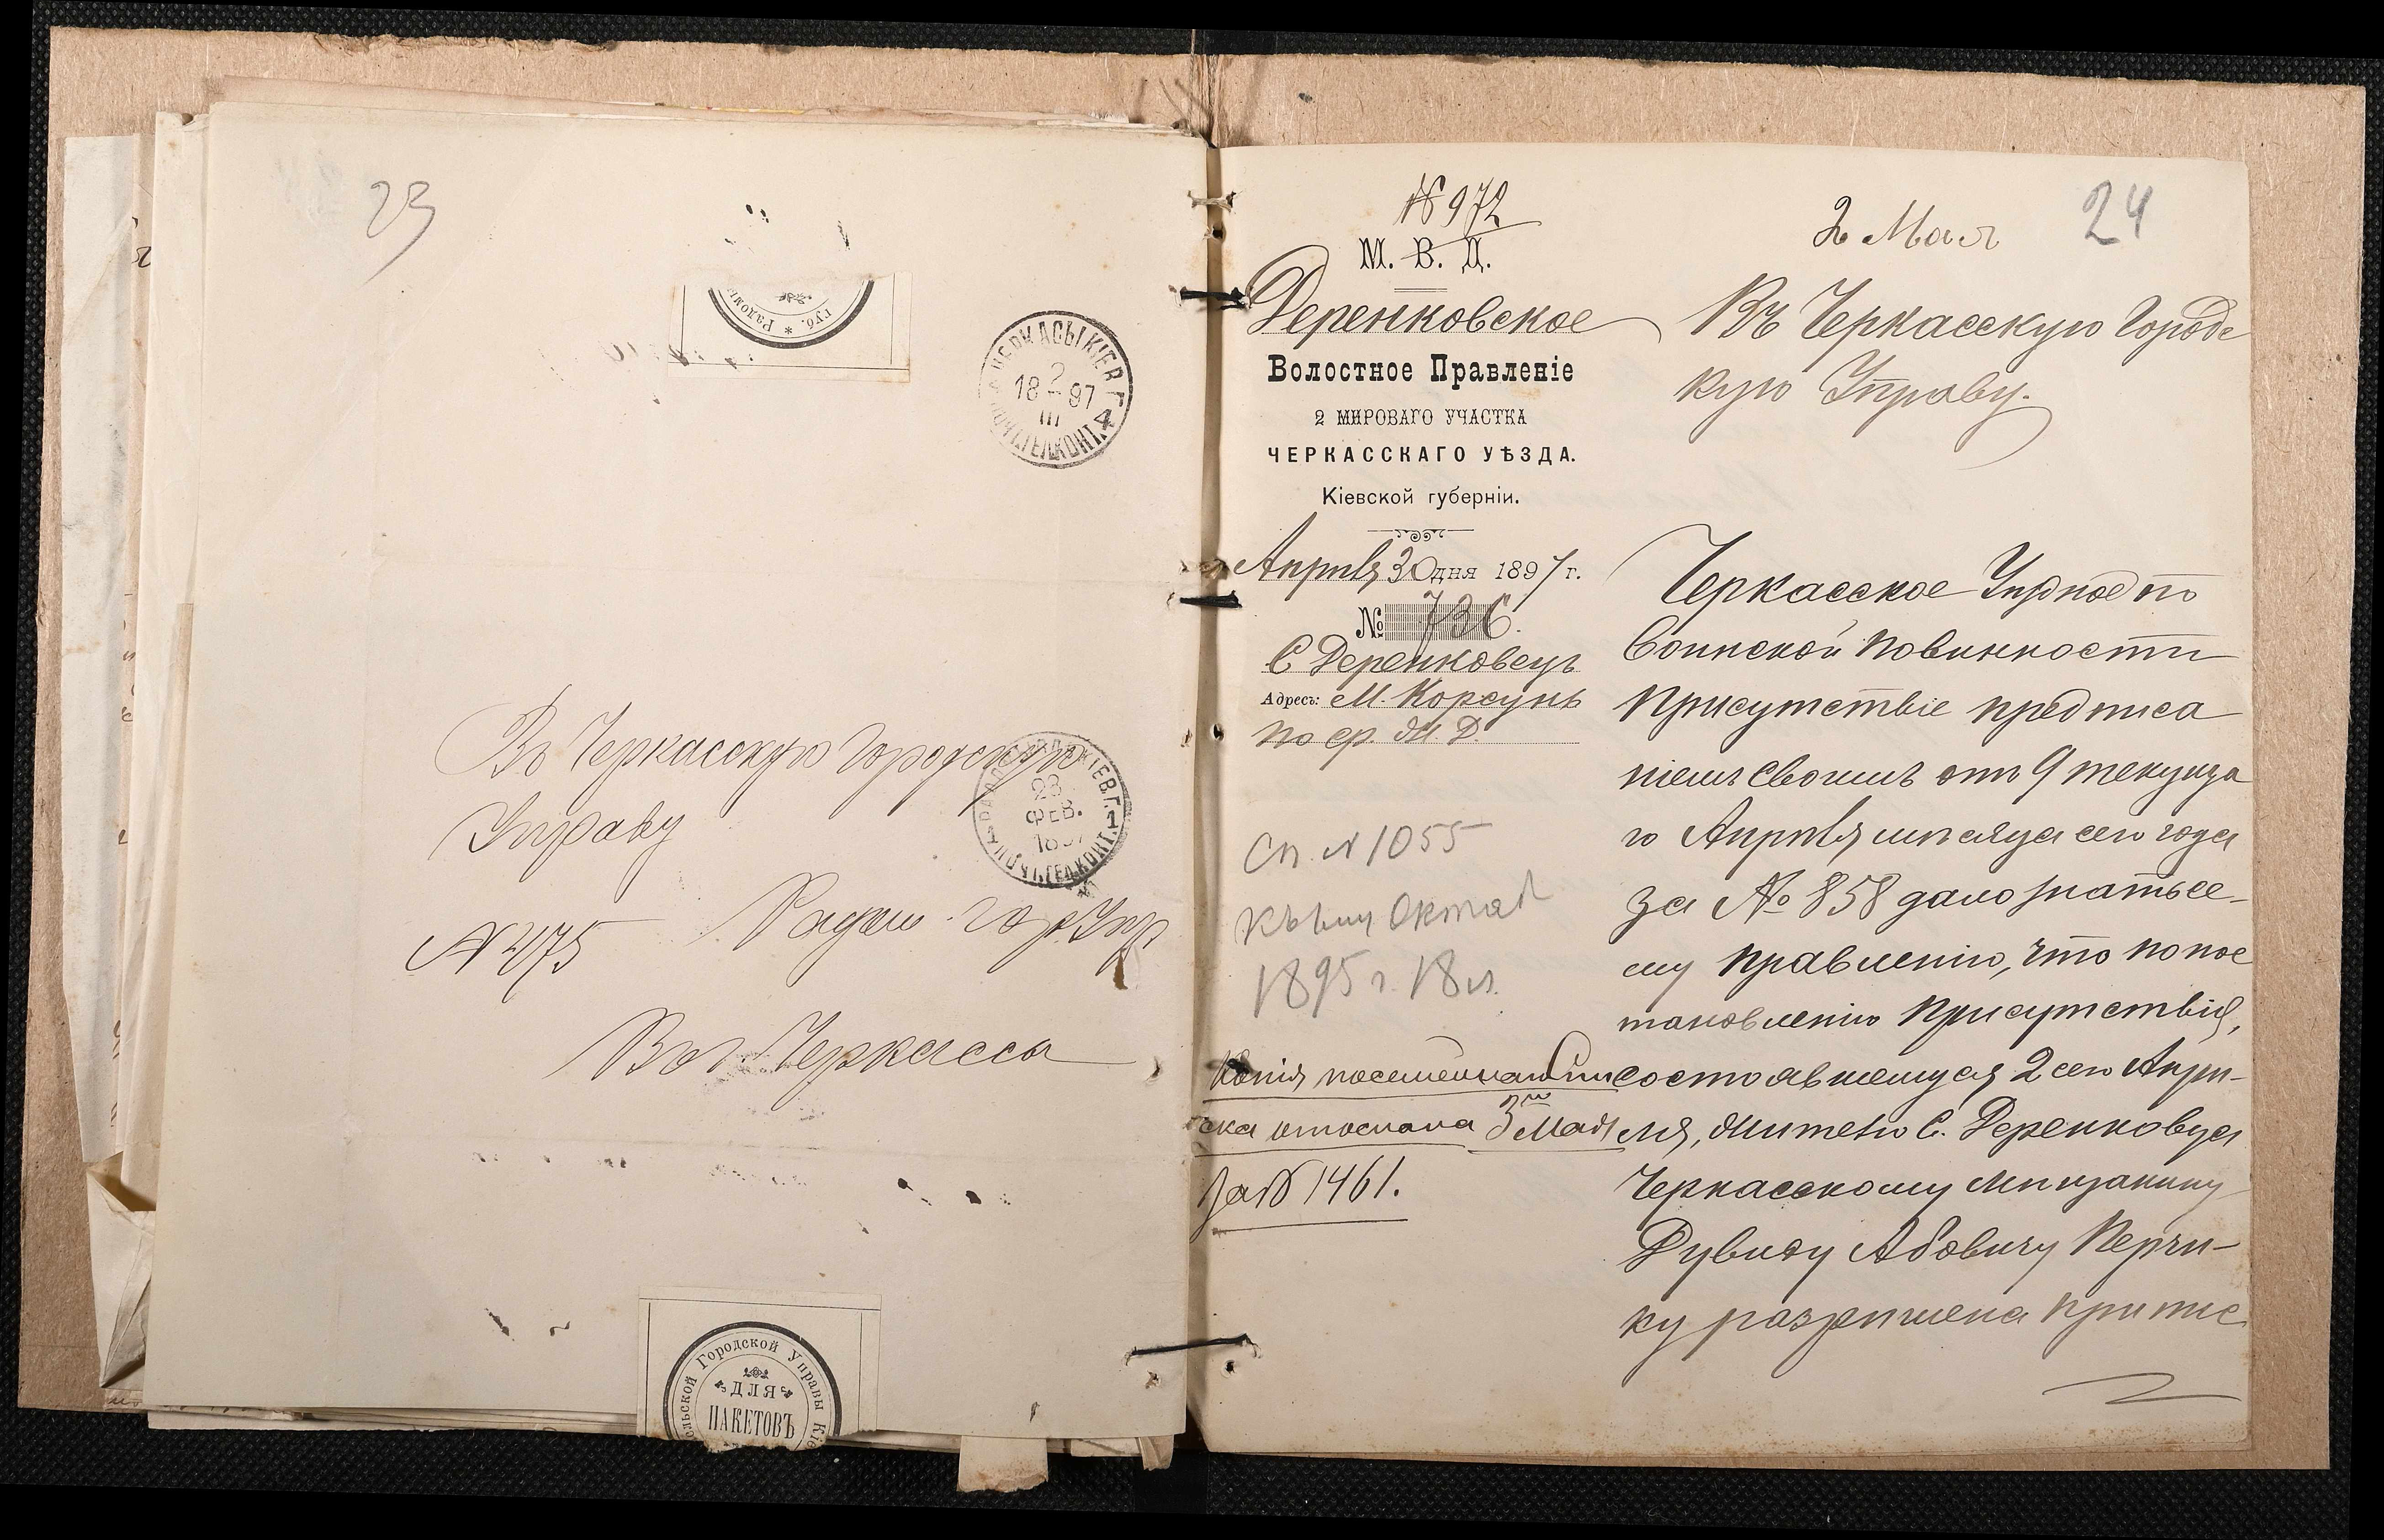 23
губ. * Радом
ЧЕРКАСЫ КІЕВ. Г.
2
18 97
III
4
Въ Черкасскую Городскую
Управу
КІЕВ. Г. 1
23
ФЕВ.
№ 475
Радом. Гор. Упр
Въ г. Черкассы
ольской Городской Управы Кіе
ДЛЯ
ПАКЕТОВЪ
№ 972
М. В. Д.
Деренковское
Волостное Правленіе
2 МИРОВАГО УЧАСТКА
ЧЕРКАССКАГО УѢЗДА.
Кіевской губерніи.
Апрѣля 30 дня 1897 г.
№ 736.
С Деренковецъ
Адресъ: М. Корсунь
по ср. ж. д.
Сп. № 1055
1895 г. 18 л.
Копія посемейнаго спи
ска отослана 3го Мая
за № 1461.
2 Мая
24
Въ Черкасскую Городс
кую Управу.
Черкасское Уѣздное по
Воинской повинности
Присутствіе предписа
ніемъ своимъ отъ 9 текуща
го Апрѣля мѣсяца сего года
за № 858 дало знать се-
му правленію, что по пос
тановленію Присутствія,
состоявшемуся 2 сего Апрѣ-
ля, жителю С. Деренковца
Черкасскому мѣщанину
Дувиду Абовичу Перчи-
ку разрѣшена припис